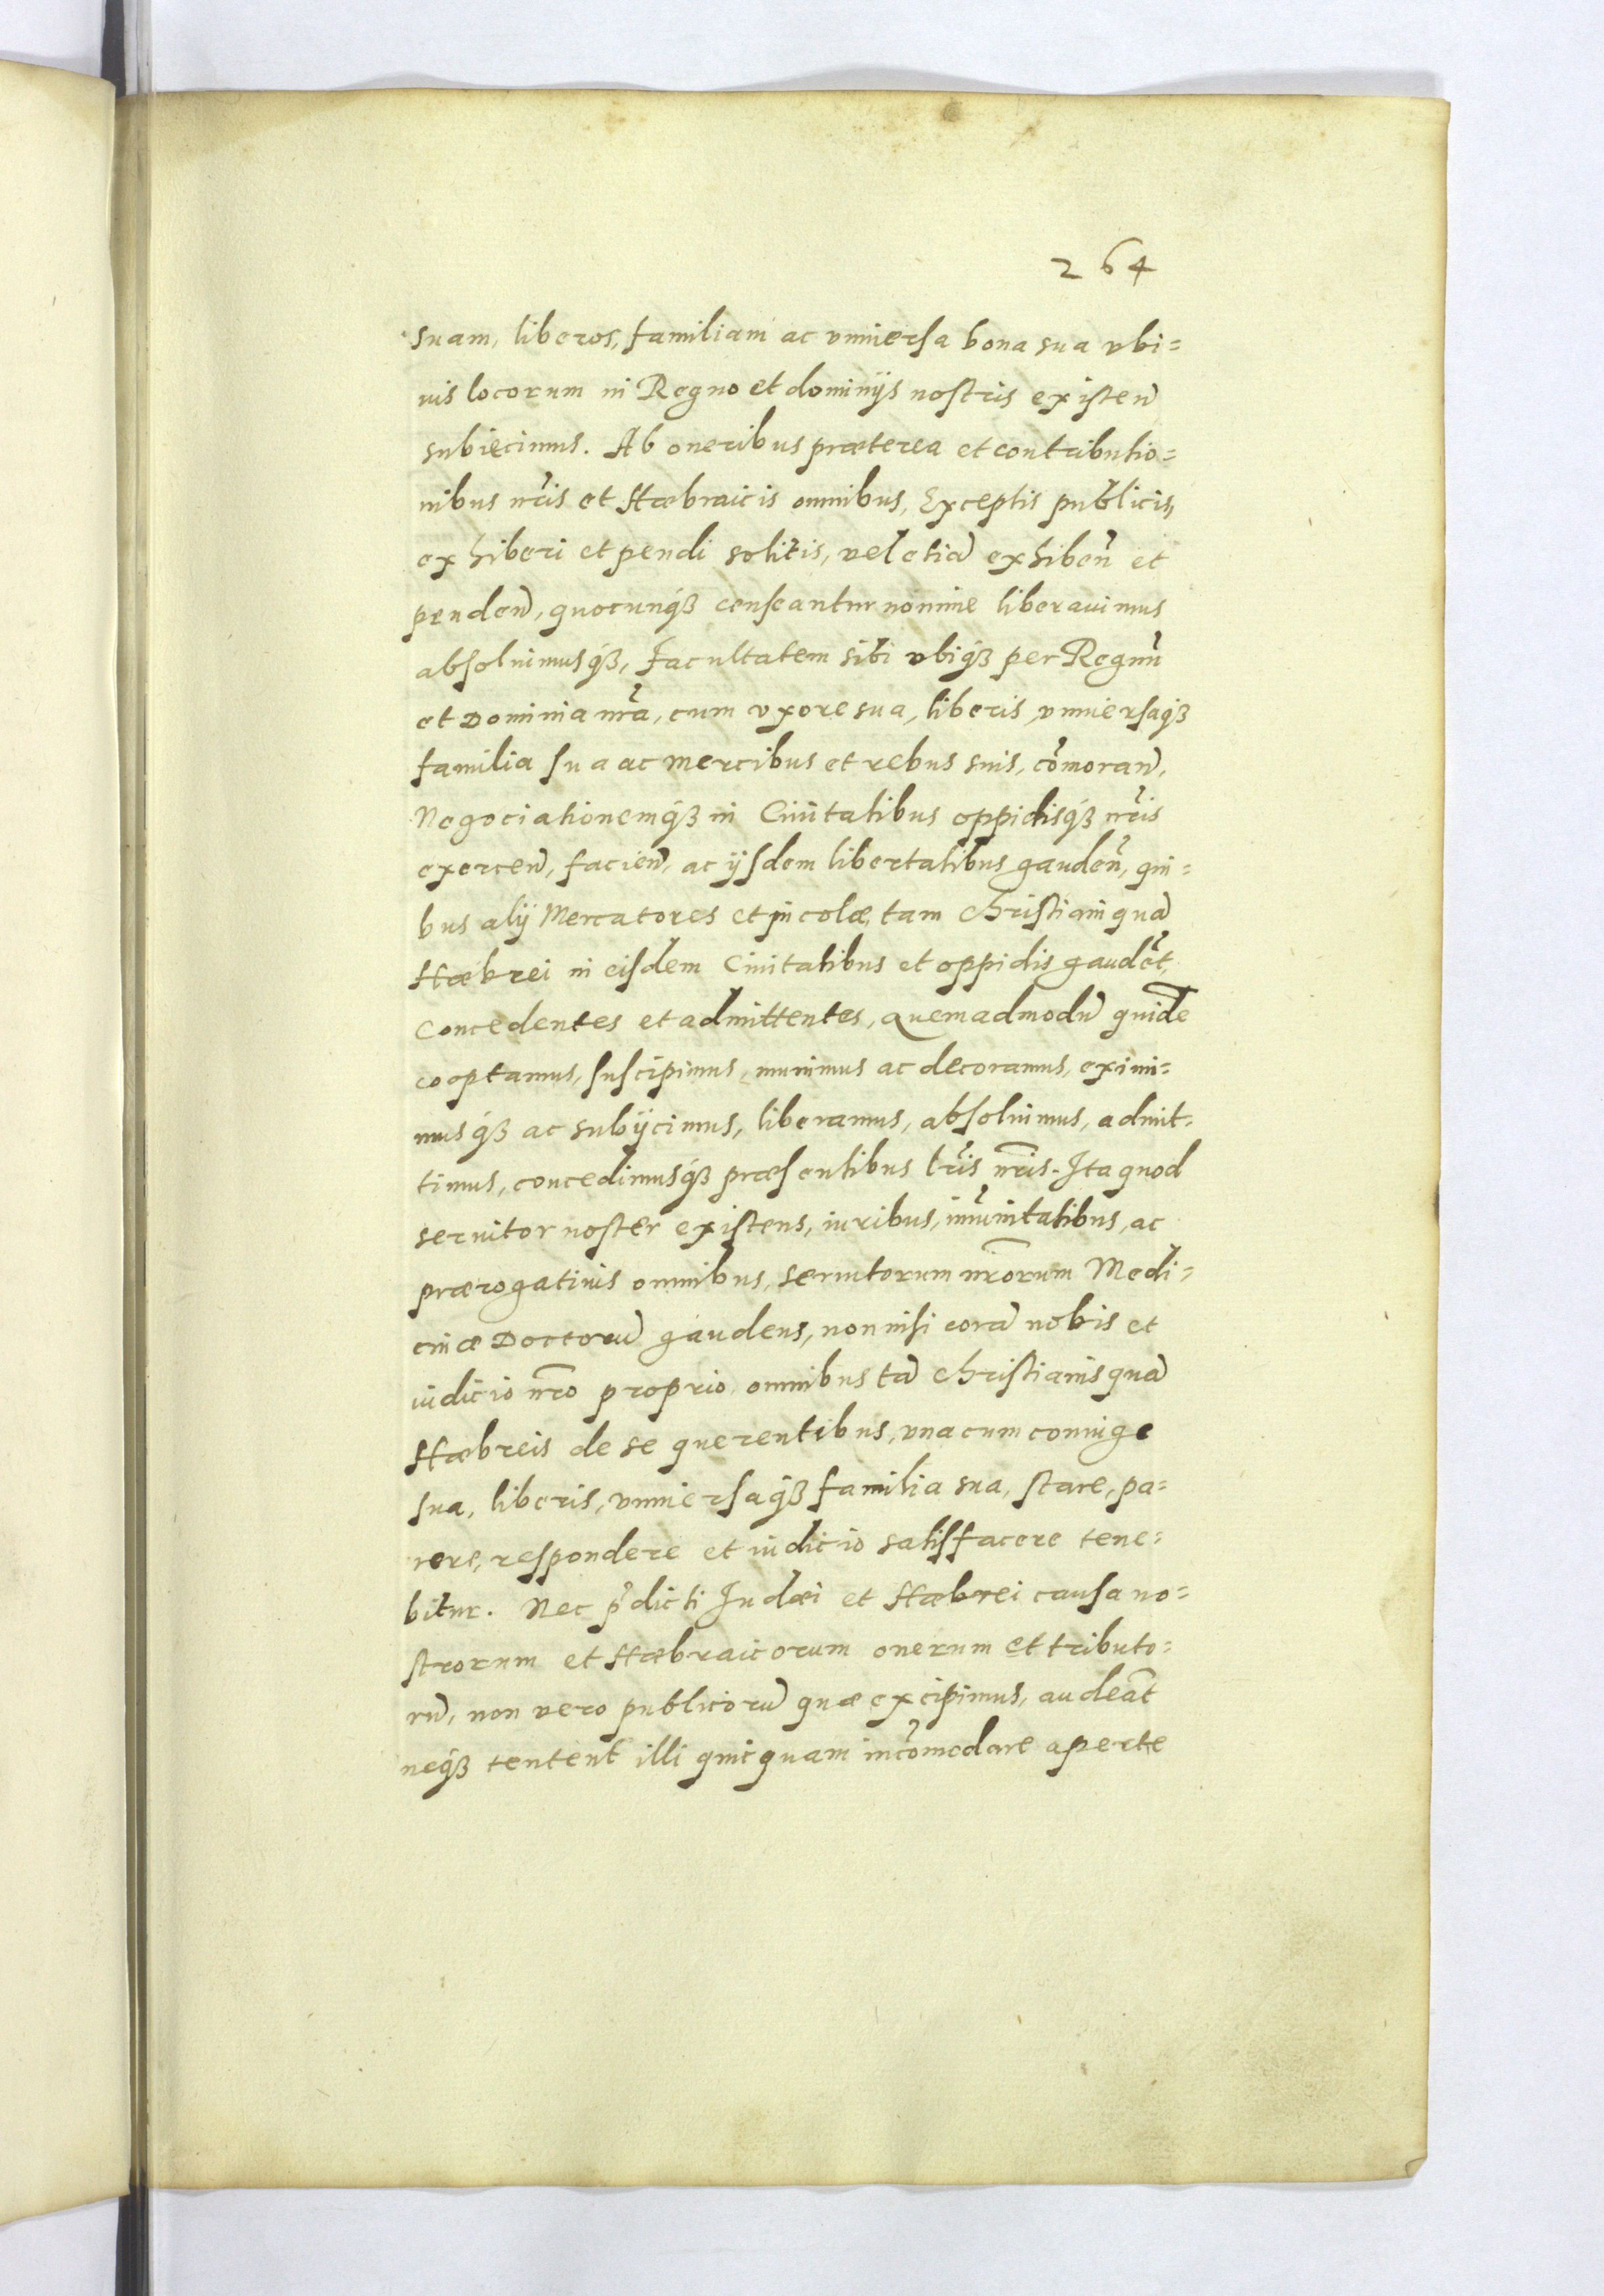 264
suam, liberos, familiam ac vniuersa bona sua vbi=
uis locorum in Regno et dominijs nostris existen̄
subiecimus. Ab oneribus præterea et contributio=
nibus nr̃is et Hæbraicis omnibus, Exceptis publicis,
exhiberi et pendi solitis, vel etiā exhiben̄ et
penden̄, quocunqꝫ censeantur nomine liberauimus
absoluimusqꝫ, Facultatem sibi vbiqꝫ per Regnū
et Dominia nr̃a, cum vxore sua, liberis, vniuersaqꝫ
familia sua ac mercibus et rebus suis, cōmoran̄,
Negociationemqꝫ in Ciuitatibus oppidisqꝫ nr̃is
exercen̄, facien̄, ac ijsdem libertatibus gauden̄, qui=
bus alij Mercatores et incolæ, tam Christiani quā
Hæbrei in eisdem Ciuitatibus et oppidis gaudēt,
Concedentes et admittentes, Quemadmodū quidē
cooptamus, suscipimus, munimus ac decoramus, eximi=
musqꝫ ac subijcimus, liberamus, absoluimus, admit=
timus, concedimusqꝫ præsentibus lr̃is nr̃is. Ita quod
seruitor noster existens, iuribus, im̄unitatibus, ac
prærogatiuis omnibus, seruitorum nr̃orum Medi=
cinæ Doctorū gaudens, non nisi corā nobis et
iudicio nr̃o proprio omnibus tā Christianis quā
Hæbreis de se querentibus, vna cum coniuge
sua, liberis, vniuersaqꝫ familia sua, stare, pa=
rere, respondere et iudicio satisfacere tene=
bitur. Nec p̄dicti Iudæi et Hæbrei causa no=
strorum et Hæbraicorum onerum et tributo=
rū, non vero publicorū quæ excipimus, audeāt
neqꝫ tentent illi quicquam incōmodare aperte